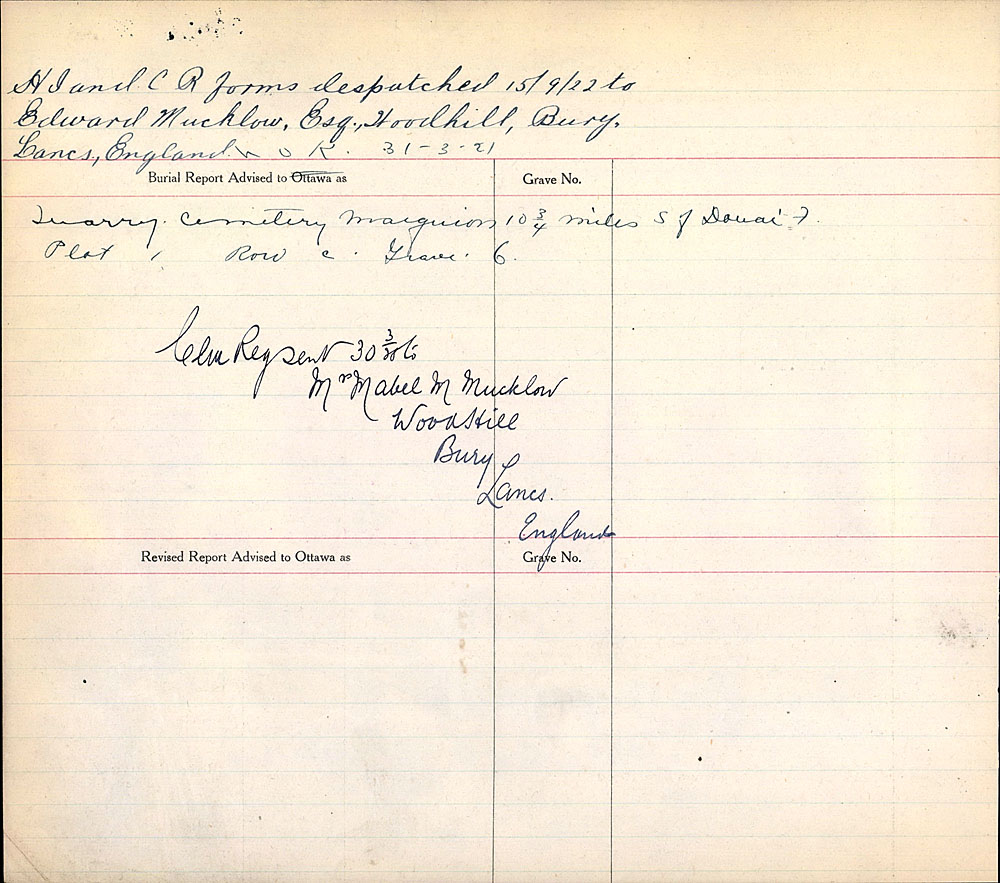 H I and C R forms despatched 15/9/22 to
Edward Mucklow, Esq., Woodhill, Bury,
Lancs, England. N O K. 31-3-21
Burial Report Advised to Ottawa as
Grave No.
Quarry. Cemetery Marquion 10 3/4 miles S of Douai
Plot 1 Row C. Grave. 6.
Reg sent 30 3/20 to
Mrs Mabel M Mucklow
Wood Hill
Bury
Lancs.
England
Revised Report Advised to Ottawa as
Grave No.